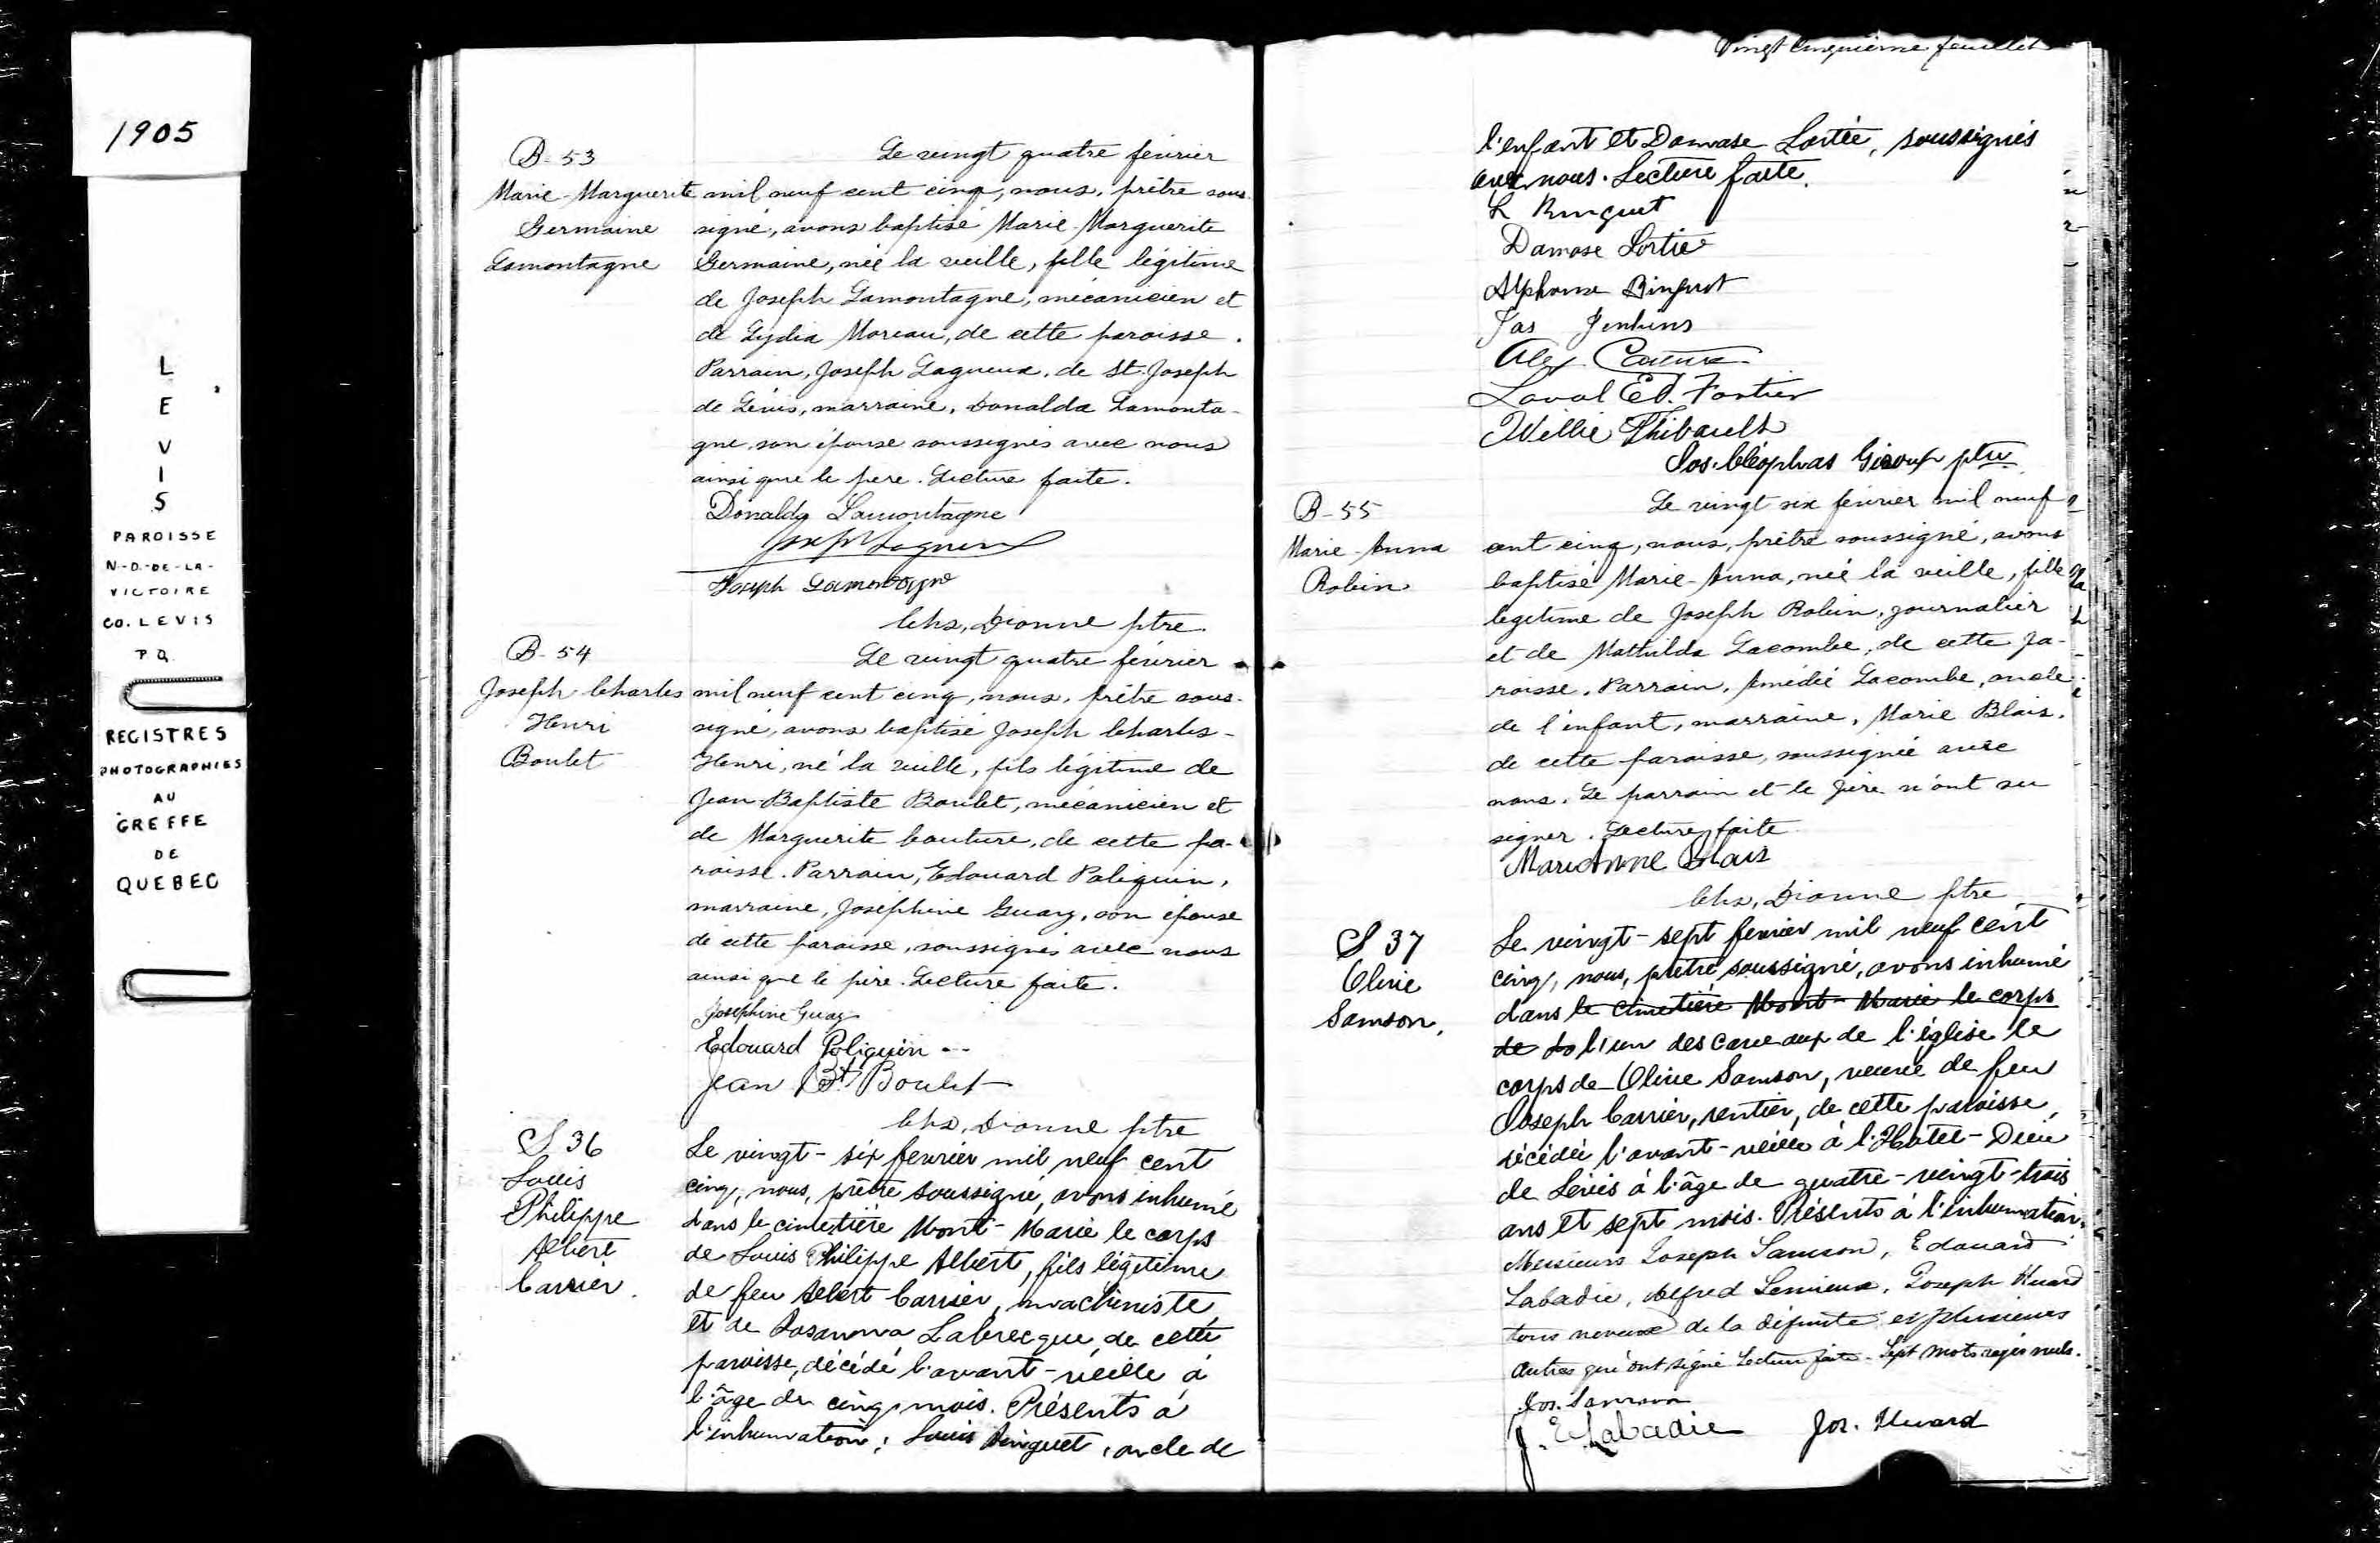 1905
L
E
V
I
S
PAROISSE
N.-D.-DE-LA-
VICTOIRE
CO. LEVIS
P.Q.
REGISTRES
PHOTOGRAPHIES
AU
GREFFE
DE
QUEBEC
B-53
Marie-Marguerite
Germaine
Lamontagne
Le vingt quatre février
mil neuf cent cinq, nous, prêtre sous-
signé, avons baptisé Marie-Marguerite
Germaine, née la veille, fille légitime
de Joseph Lamontagne, mécanicien et
de Lydia Moreau, de cette paroisse.
Parrain, Joseph Lagueux, de St. Joseph
de Lévis, marraine, Donalda Lamonta-
gne, son épouse soussignés avec nous
ainsi que le père. Lecture faite.
Donalda Lamontagne
Joseph Lagueux
Joseph Lamontagne
Chs. Dionne ptre.
B-54
Joseph Charles
Henri
Boulet
Le vingt quatre février
mil neuf cent cinq, nous, prêtre sous-
signé, avons baptisé Joseph Charles-
Henri, né la veille, fils légitime de
Jean-Baptiste Boulet, mécanicien et
de Marguerite Couture, de cette pa-
roisse. Parrain, Edouard Poliquin,
marraine, Joséphine Guay, son épouse
de cette paroisse, soussignés avec nous
ainsi que le père. Lecture faite.
Josephine Guay
Edouard Poliquin
Jean Bt Boulet
Chs. Dionne ptre
S 36
Louis
Philippe
Albert
Carrier.
Le vingt-six fevrier mil neuf cent
cinq, nous, prêtre soussigné, avons inhumé
dans le cimetière Mont-Marie le corps
de Louis Philippe Albert, fils légitime
de feu Albert Carrier, machiniste,
et de Rosanna Labrecque, de cette
paroisse, décédé l'avant-veille à
l'âge de cinq mois. Présents à
l'inhumation: Louis Ringuet, oncle de
Vingt cinquième feuillet
l'enfant et Damase Lortie, soussignés
avec nous. Lecture faite.
L Ringuet
Damase Lortie
Alphonse Ringuet
Jas Jenkins
Alex
Laval Ed. Fortier
Willie Thibault
Jos. Cléophas Giroux ptre
B-55
Marie-Anna
Robin
Le vingt six février mil neuf
cent cinq, nous, prêtre soussigné, avons
baptisé Marie-Anna, née la veille, fille
legitime de Joseph Robin, journalier
et de Mathilda Lacombe, de cette pa-
roisse. Parrain, Amédée Lacombe, oncle
de l'enfant, marraine, Marie Blais,
de cette paroisse, soussignée avec
nous. Le parrain et le père n'ont su
signer. Lecture faite
MarieAnne Blais
Chs. Dionne ptre
S 37
Olive
Samson,
Le vingt-sept fevrier mil neuf cent
cinq, nous, prêtre soussigné, avons inhumé
dans le cimetière Mont-Marie le corps
de l'un des caveaux de l'église le
corps de Olive Samson, veuve de feu
Joseph Carrier, rentier, de cette paroisse,
décédée l'avant-veille à l'Hôtel-Dieu
de Lévis à l'âge de quatre-vingt-trois
ans et sept mois. Présents à l'inhumation,
Messieurs Joseph Samson, Edouard
Labadie, Alfred Lemieux, Joseph Huard
tous neveux de la défunte et plusieurs
autres qui ont signé. Lecture faite. Sept mots rayés nuls.
Jos. Samson
J. E Labadie Jos. Huard